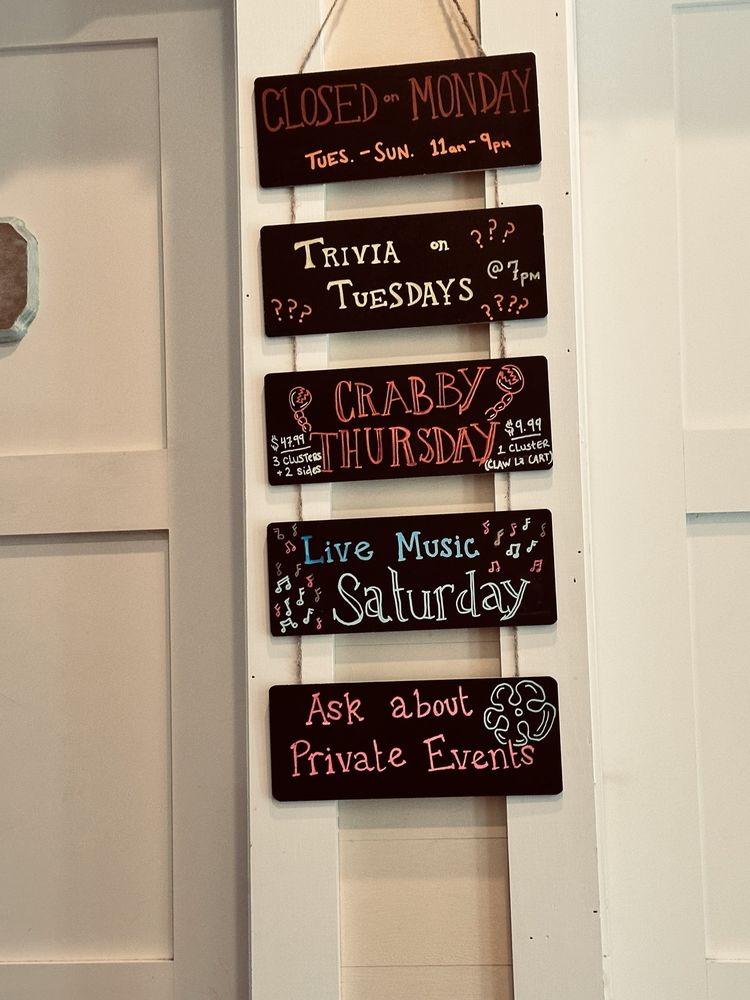 CLOSED on MONDAY
TUES. - SUN. 11am - 9pm
TRIVIA on ???
TUESDAYS @ 7pm
??? ????
CRABBY
THURSDAY
$47.99
3 CLUSTERS
+ 2 sides
$9.99
1 CLUSTER
(CLAW La CART)
Live Music
Saturday
Ask about
Private Events